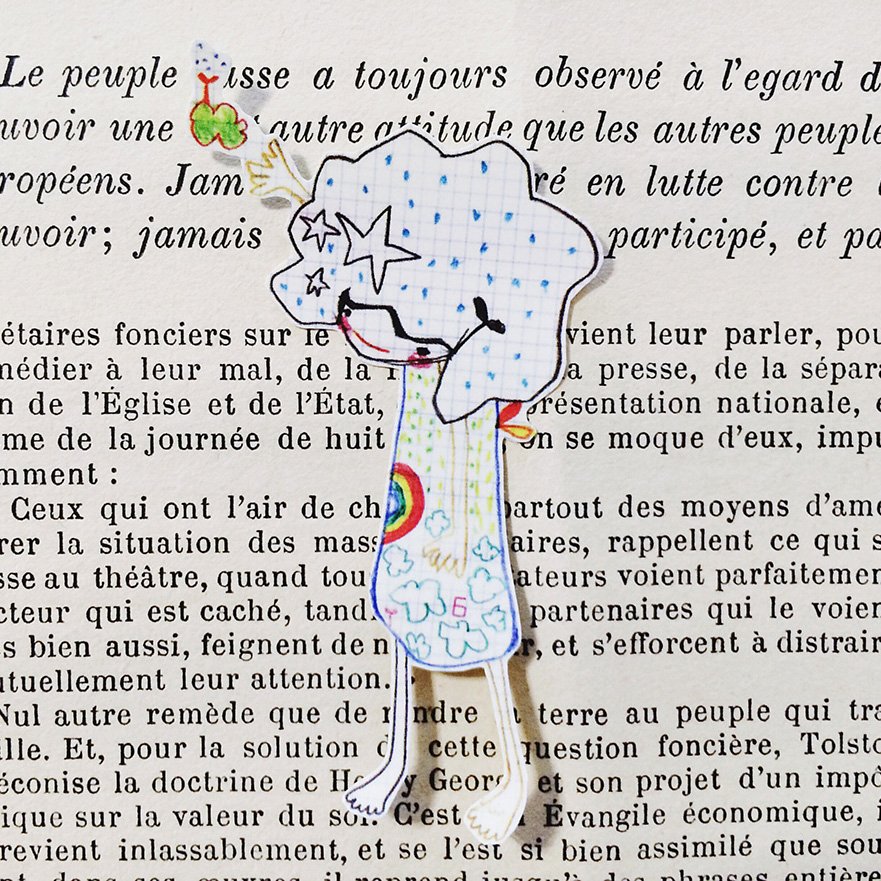 Le peuple usse a toujours observé à l'egard d
uvoir une autre attitude que les autres peuple
ropéens. Jam ré en lutte contre
uvoir; jamais participé, et pa
étaires fonciers sur le vient leur parler, pou
médier à leur mal, de la a presse, de la sépara
n de l'Église et de l'État, présentation nationale, e
me de la journée de huit on se moque d'eux, impu
mment :
Ceux qui ont l'air de ch partout des moyens d'amé
rer la situation des mass aires, rappellent ce qui s
sse au théâtre, quand tou ateurs voient parfaitemen
cteur qui est caché, tand partenaires qui le voien
s bien aussi, feignent de n r, et s'efforcent à distrair
utuellement leur attention.
6
Nul autre remède que de r ndre terre au peuple qui tra
ille. Et, pour la solution d cette question foncière, Tolsto
éconise la doctrine de He y Georg et son projet d'un impô
ique sur la valeur du sol. C'est Évangile économique, i
revient inlassablement, et se l'est si bien assimilé que sou
dans ses œuvres, il reprend jusqu'à des phrases entière